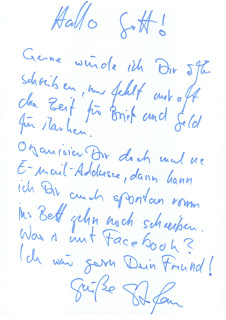 Hallo Gott!
Gerne würde ich Dir öfter
schreiben, nur fehlt mir oft
die Zeit für Brief und Geld
für Marken.
Organisier Dir doch mal ne
E-mail-Addresse, dann kann
ich Dir auch spontan vorm
ins Bett gehn noch schreiben.
Was is mit Facebook?
Ich wär gern Dein Freund!
Grüße Stefan